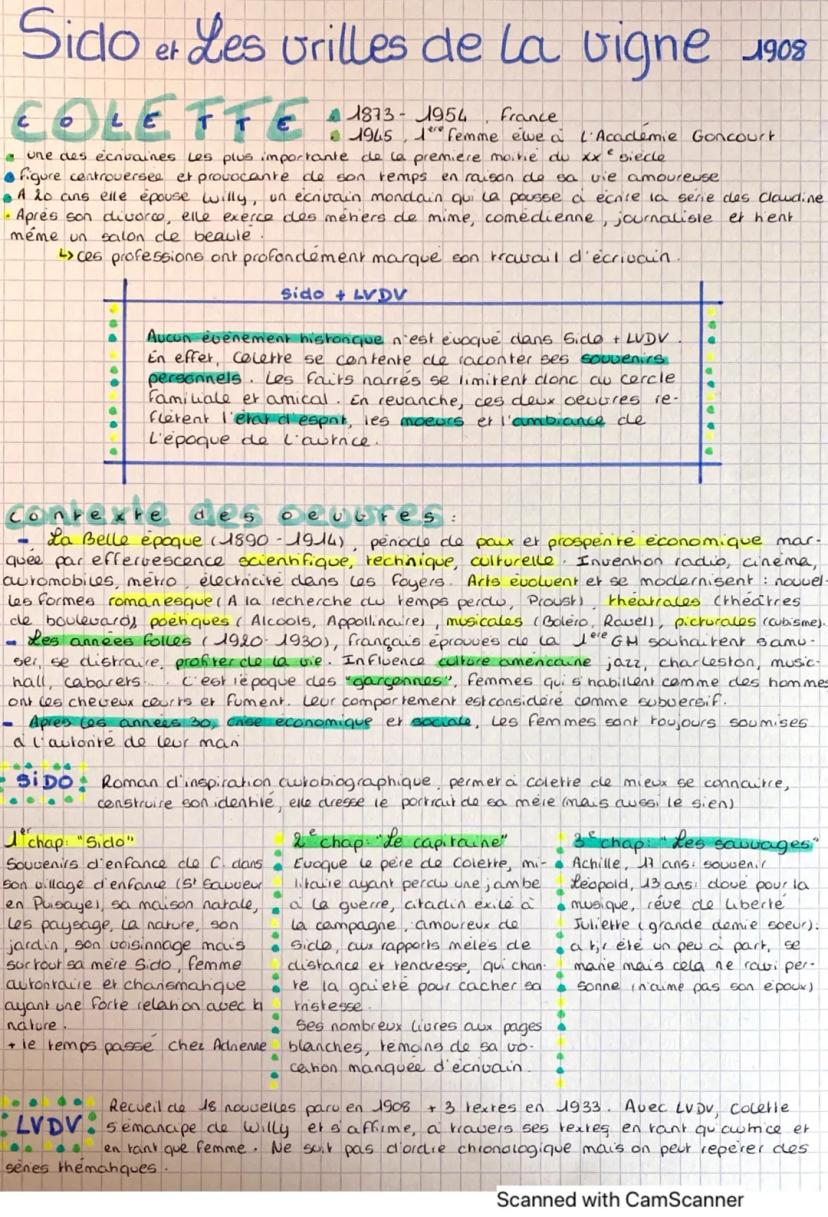 Sido et Les vrilles de la vigne 1908
COLETTE 1873 - 1954, France
1945, 1ère femme élue à L'Académie Goncourt
une des écrivaines les plus importante de la première moitié du XXe siècle
figure controversée et provocante de son temps en raison de sa vie amoureuse
A 20 ans elle épouse Willy, un écrivain mondain qui la pousse à écrire la série des Claudine
Après son divorce, elle exerce des métiers de mime, comédienne, journaliste et tient
même un salon de beauté.
↳ ces professions ont profondément marqué son travail d'écrivain.
Sido + LVDV
Aucun évènement historique n'est évoqué dans Sido + LVDV.
En effet, Colette se contente de raconter ses souvenirs
personnels. Les faits narrés se limitent donc au cercle
familiale et amical. En revanche, ces deux oeuvres re-
flètent l'état d'esprit, les moeurs et l'ambiance de
l'époque de l'autrice.
contexte des oeuvres :
- La Belle époque (1890 - 1914), période de paix et prospérité économique mar-
quée par effervescence scientifique, technique, culturelle. Invention radio, cinéma,
automobiles, métro, électricité dans les foyers. Arts évoluent et se modernisent : nouvel-
les formes romanesque (A la recherche du temps perdu, Proust), théatrales (théâtres
de boulevard), poétiques (Alcools, Appollinaire), musicales (Boléro, Ravel), picturales (cubisme).
- Les années folles (1920-1930), français éprouvés de la 1ère GM souhaitent s'amu-
ser, se distraire, profiter de la vie. Influence culture américaine jazz, charleston, music-
hall, cabarets... C'est l'époque des "garçonnes", femmes qui s'habillent comme des hommes
ont les cheveux courts et fument. Leur comportement est considéré comme subversif.
- Après les années 30, crise économique et sociale, les femmes sont toujours soumises
à l'autorité de leur mari
SIDO : Roman d'inspiration autobiographique, permet à colette de mieux se connaitre,
construire son identité, elle dresse le portrait de sa mère (mais aussi le sien)
1er chap: "Sido"
Souvenirs d'enfance de C. dans
son village d'enfance (St Sauveur
en Puisaye), sa maison natale,
les paysage, la nature, son
jardin, son voisinnage mais
surtout sa mère Sido, femme
autoritaire et charismatique
ayant une forte relation avec la
nature.
+ le temps passé chez Adrienne
2e chap: "Le capitaine"
Evoque le père de Colette, mi-
litaire ayant perdu une jambe
à la guerre, citadin exilé à
la campagne, amoureux de
Sido, aux rapports mêlés de
distance et tendresse, qui chan-
te la gaieté pour cacher sa
tristesse.
Ses nombreux livres aux pages
blanches, témoins de sa vo-
cation manquée d'écrivain.
3e chap: "Les sauvages"
Achille, 17 ans: souvenir
Léopold, 13 ans: doué pour la
musique, rêve de liberté
Juliette (grande demie soeur):
a tjr été un peu à part, se
marie mais cela ne ravi per-
sonne (n'aime pas son époux)
LVDV : Recueil de 18 nouvelles paru en 1908 + 3 textes en 1933. Avec LVDV, Colette
s'émancipe de Willy et s'affirme, à travers ses textes, en tant qu'autrice et
en tant que femme. Ne suit pas d'ordre chronologique mais on peut repérer des
séries thématiques.
Scanned with CamScanner